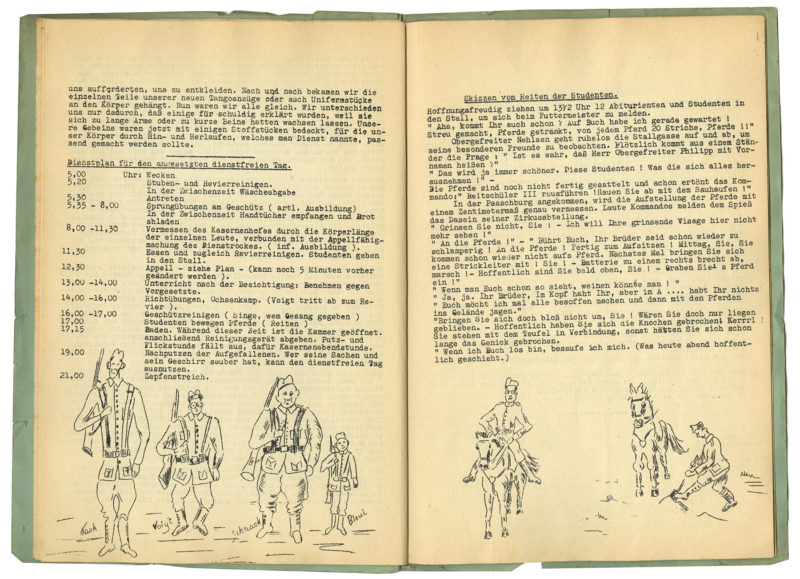 uns aufforderten, uns zu entkleiden. Nach und nach bekamen wir die
einzelnen Teile unserer neuen Tangoanzüge oder auch Uniformstücke
an den Körper gehängt. Nun waren wir alle gleich. Wir unterschieden
uns nur dadurch, daß einige für schuldig erklärt wurden, weil sie
sich zu lange Arme oder zu kurze Beine hatten wachsen lassen. Unse-
re Gebeine waren jetzt mit einigen Stoffstücken bedeckt, für die un-
ser Körper durch Hin- und Herlaufen, welches man Dienst nannte, pas-
send gemacht werden sollte.
Dienstplan für den angesetzten dienstfreien Tag.
5,00 Uhr: Wecken
5,20 Stuben- und Revierreinigen.
In der Zwischenzeit Wäscheabgabe
5,30 Antreten
5,35 - 8,00 Sprungübungen am Geschütz ( artl. Ausbildung)
In der Zwischenzeit Handtücher empfangen und Brot
abladen
8,00 -11,30 Vermessen des Kasernenhofes durch die Körperlänge
der einzelnen Leute, verbunden mit der Appellfähig-
machung des Dienstrockes. ( inf. Ausbildung ).
11,30 Essen und zugleich Revierreinigen. Studenten gehen
in den Stall.
12,30 Appell - siehe Plan - (kann noch 5 Minuten vorher
geändert werden ).
13,00 -14,00 Unterricht nach der Besichtigung: Benehmen gegen
Vorgesetzte.
14,00 -16,00 Richtübungen, Ochsenkamp. (Voigt tritt ab zum Re-
vier ).
16,00 -17,00 Geschützreinigen ( Singe, wem Gesang gegeben )
17,00 Studenten bewegen Pferde ( Reiten )
17,15 Baden. Während dieser Zeit ist die Kammer geöffnet.
anschließend Reinigungsgerät abgeben. Putz- und
Flickstunde fällt aus, dafür Kasernenabendstunde.
19,00 Nachputzen der Aufgefallenen. Wer seine Sachen und
sein Geschirr sauber hat, kann den dienstfreien Tag
ausnutzen.
21,00 Zapfenstreich.
Voigt
Schnack
Skizzen vom Reiten der Studenten.
Hoffnungsfreudig ziehen um 1372 Uhr 12 Abiturienten und Studenten in
den Stall, um sich beim Futtermeister zu melden.
" Aha, kommt Ihr auch schon ? Auf Euch habe ich gerade gewartet !
Streu gemacht, Pferde getränkt, von jedem Pferd 20 Striche, Pferde !!"
Obergefreiter Nehlsen geht ruhelos die Stallgasse auf und ab, um
seine besonderen Freunde zu beobachten. Plötzlich kommt aus einem Stän-
der die Frage : " Ist es wahr, daß Herr Obergefreiter Philipp mit Vor-
namen heißen ?"
" Das wird ja immer schöner. Diese Studenten ! Was die sich alles her-
ausnehmen !" -
Die Pferde sind noch nicht fertig gesattelt und schon ertönt das Kom-
mando:" Reitschüler III rausführen !Hauen Sie ab mit dem Sauhaufen !"
In der Paaschburg angekommen, wird die Aufstellung der Pferde mit
einem Zentimetermaß genau vermessen. Laute Kommandos melden dem Spieß
das Dasein seiner Zirkusabteilung.
" Grinsen Sie nicht, Sie ! - Ich will Ihre grinsende Visage hier nicht
mehr sehen !"
" An die Pferde !" - " Rührt Euch, Ihr Brüder seid schon wieder zu
schlapperig ! an die Pferde ! fertig zum Aufsitzen ! Mittag, Sie, Sie
kommen schon wieder nicht aufs Pferd. Nächstes Mal bringen Sie sich
eine Strickleiter mit ! Sie ! - Batterie zu einen rechts brecht ab,
marsch !- Hoffentlich sind Sie bald oben, Sie ! - Graben Sie s Pferd
ein !"
" Wenn man Euch schon so sieht, weinen könnte man ! "
" Ja, ja. Ihr Brüder, im Kopf habt Ihr, aber im A .... habt Ihr nichts
" Euch möcht ich mal alle besoffen machen und dann mit den Pferden
ins Gelände jagen."
"Bringen Sie sich doch bloß nicht um, Sie ! Wären Sie doch nur liegen
geblieben. - Hoffentlich haben Sie sich die Knochen gebrochen! Kerrr!
Sie stehen mit dem Teufel in Verbindung, sonst hätten Sie sich schon
lange das Genick gebrochen.
" Wenn ich Euch los bin, besaufe ich mich. (Was heute abend hoffent-
lich geschieht.)